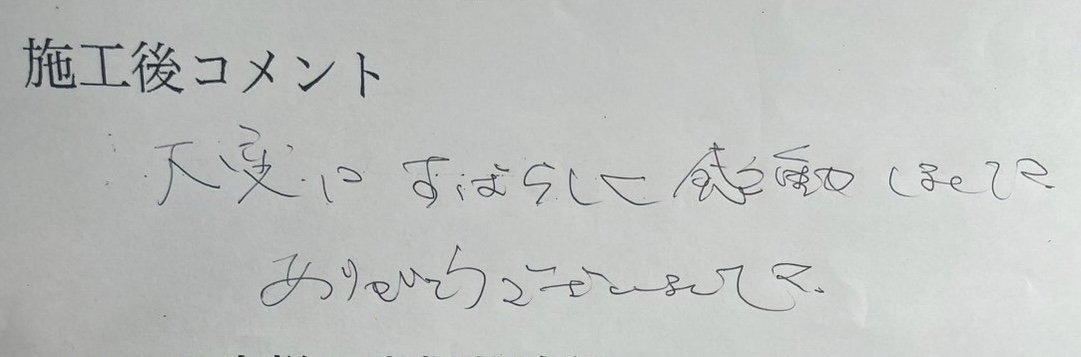 施工後コメント
大変にすばらしく感動しました。
ありがとうございました。